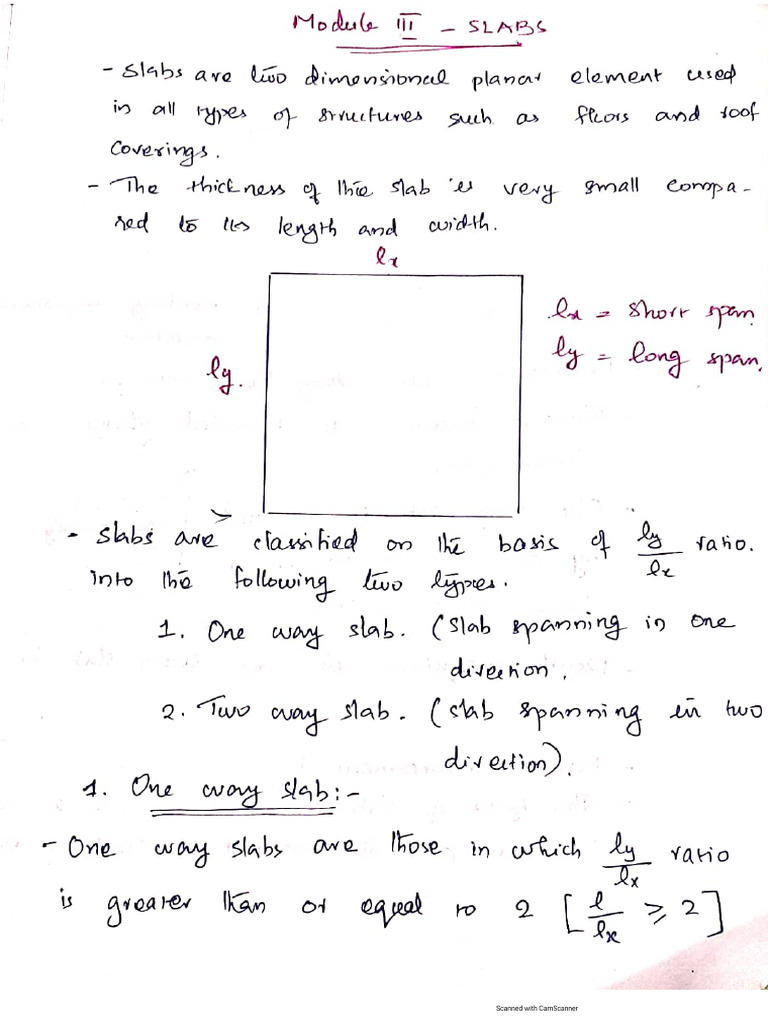 Module III - SLABS
- Slabs are two dimensional planar element used
in all types of structures such as floors and roof
coverings.
- The thickness of the slab is very small compa-
red to its length and width.
lx
lx = short span.
ly.
ly = long span.
- Slabs are classified on the basis of ly/lx ratio.
into the following two types.
1. One way slab. (slab spanning in one
direction.
2. Two way slab. (slab spanning in two
direction).
1. One way slab:-
- One way slabs are those in which ly/lx ratio
is greater than or equal to 2 [l/lx ≥ 2]
Scanned with CamScanner